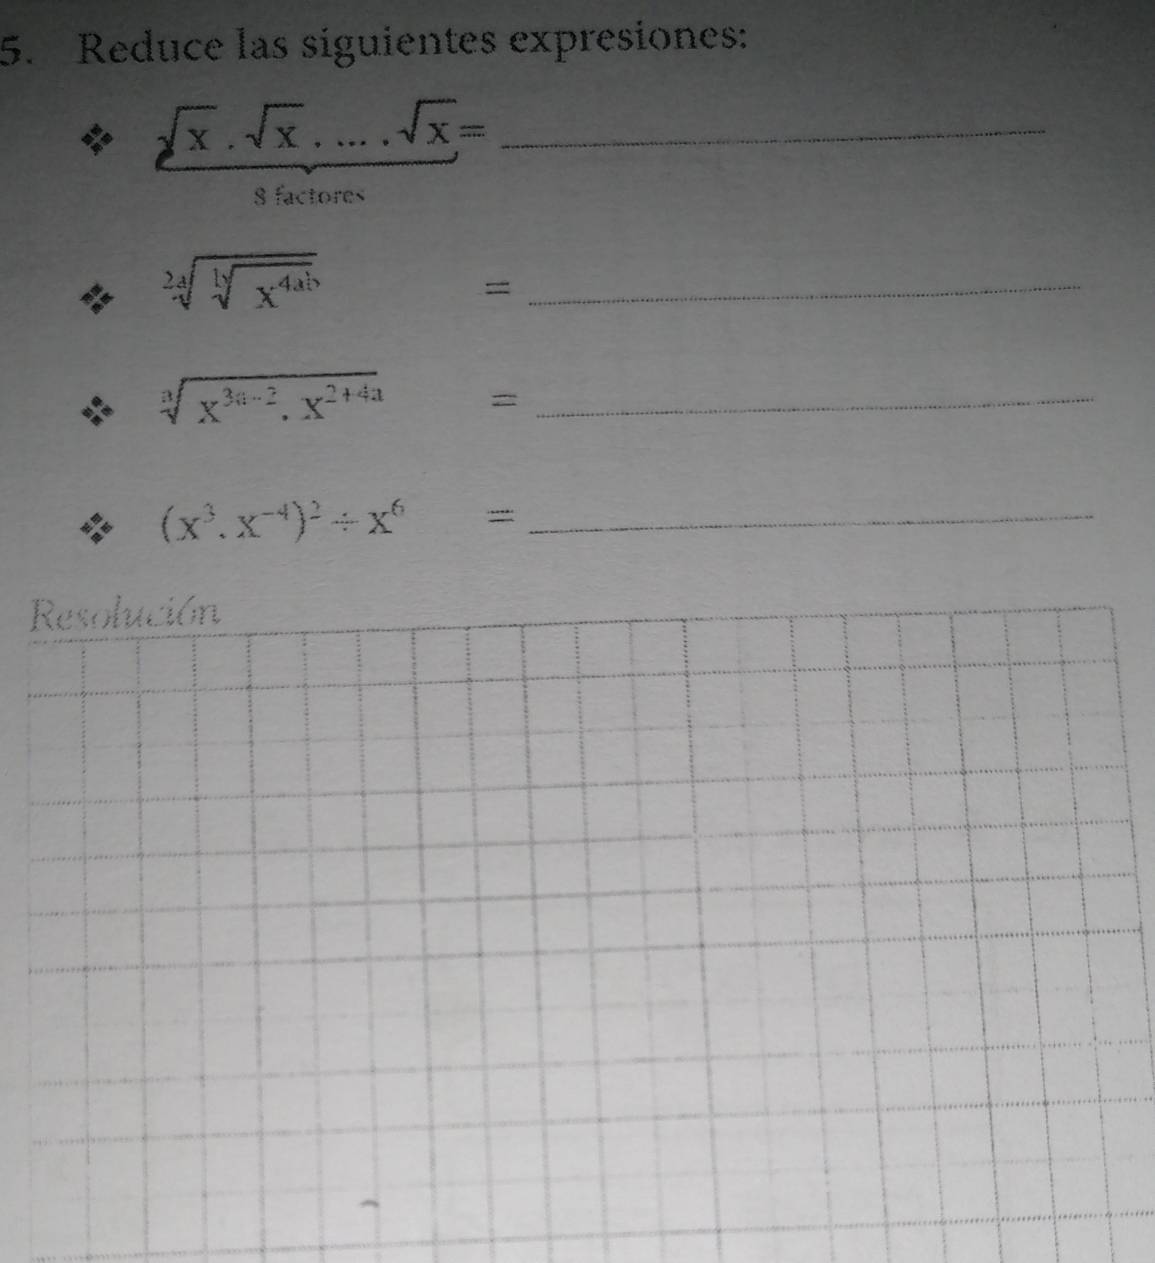 5. Reduce las siguientes expresiones:
❖ √x . √x . ... . √x = 
8 factores
❖ ²ᵃ√(ᵇ√(x⁴ᵃᵇ)) = 
❖ ᵃ√(x³ᵃ⁻² . x²⁺⁴ᵃ) = 
❖ (x³ . x⁻⁴)² ÷ x⁶ = 
Resolución